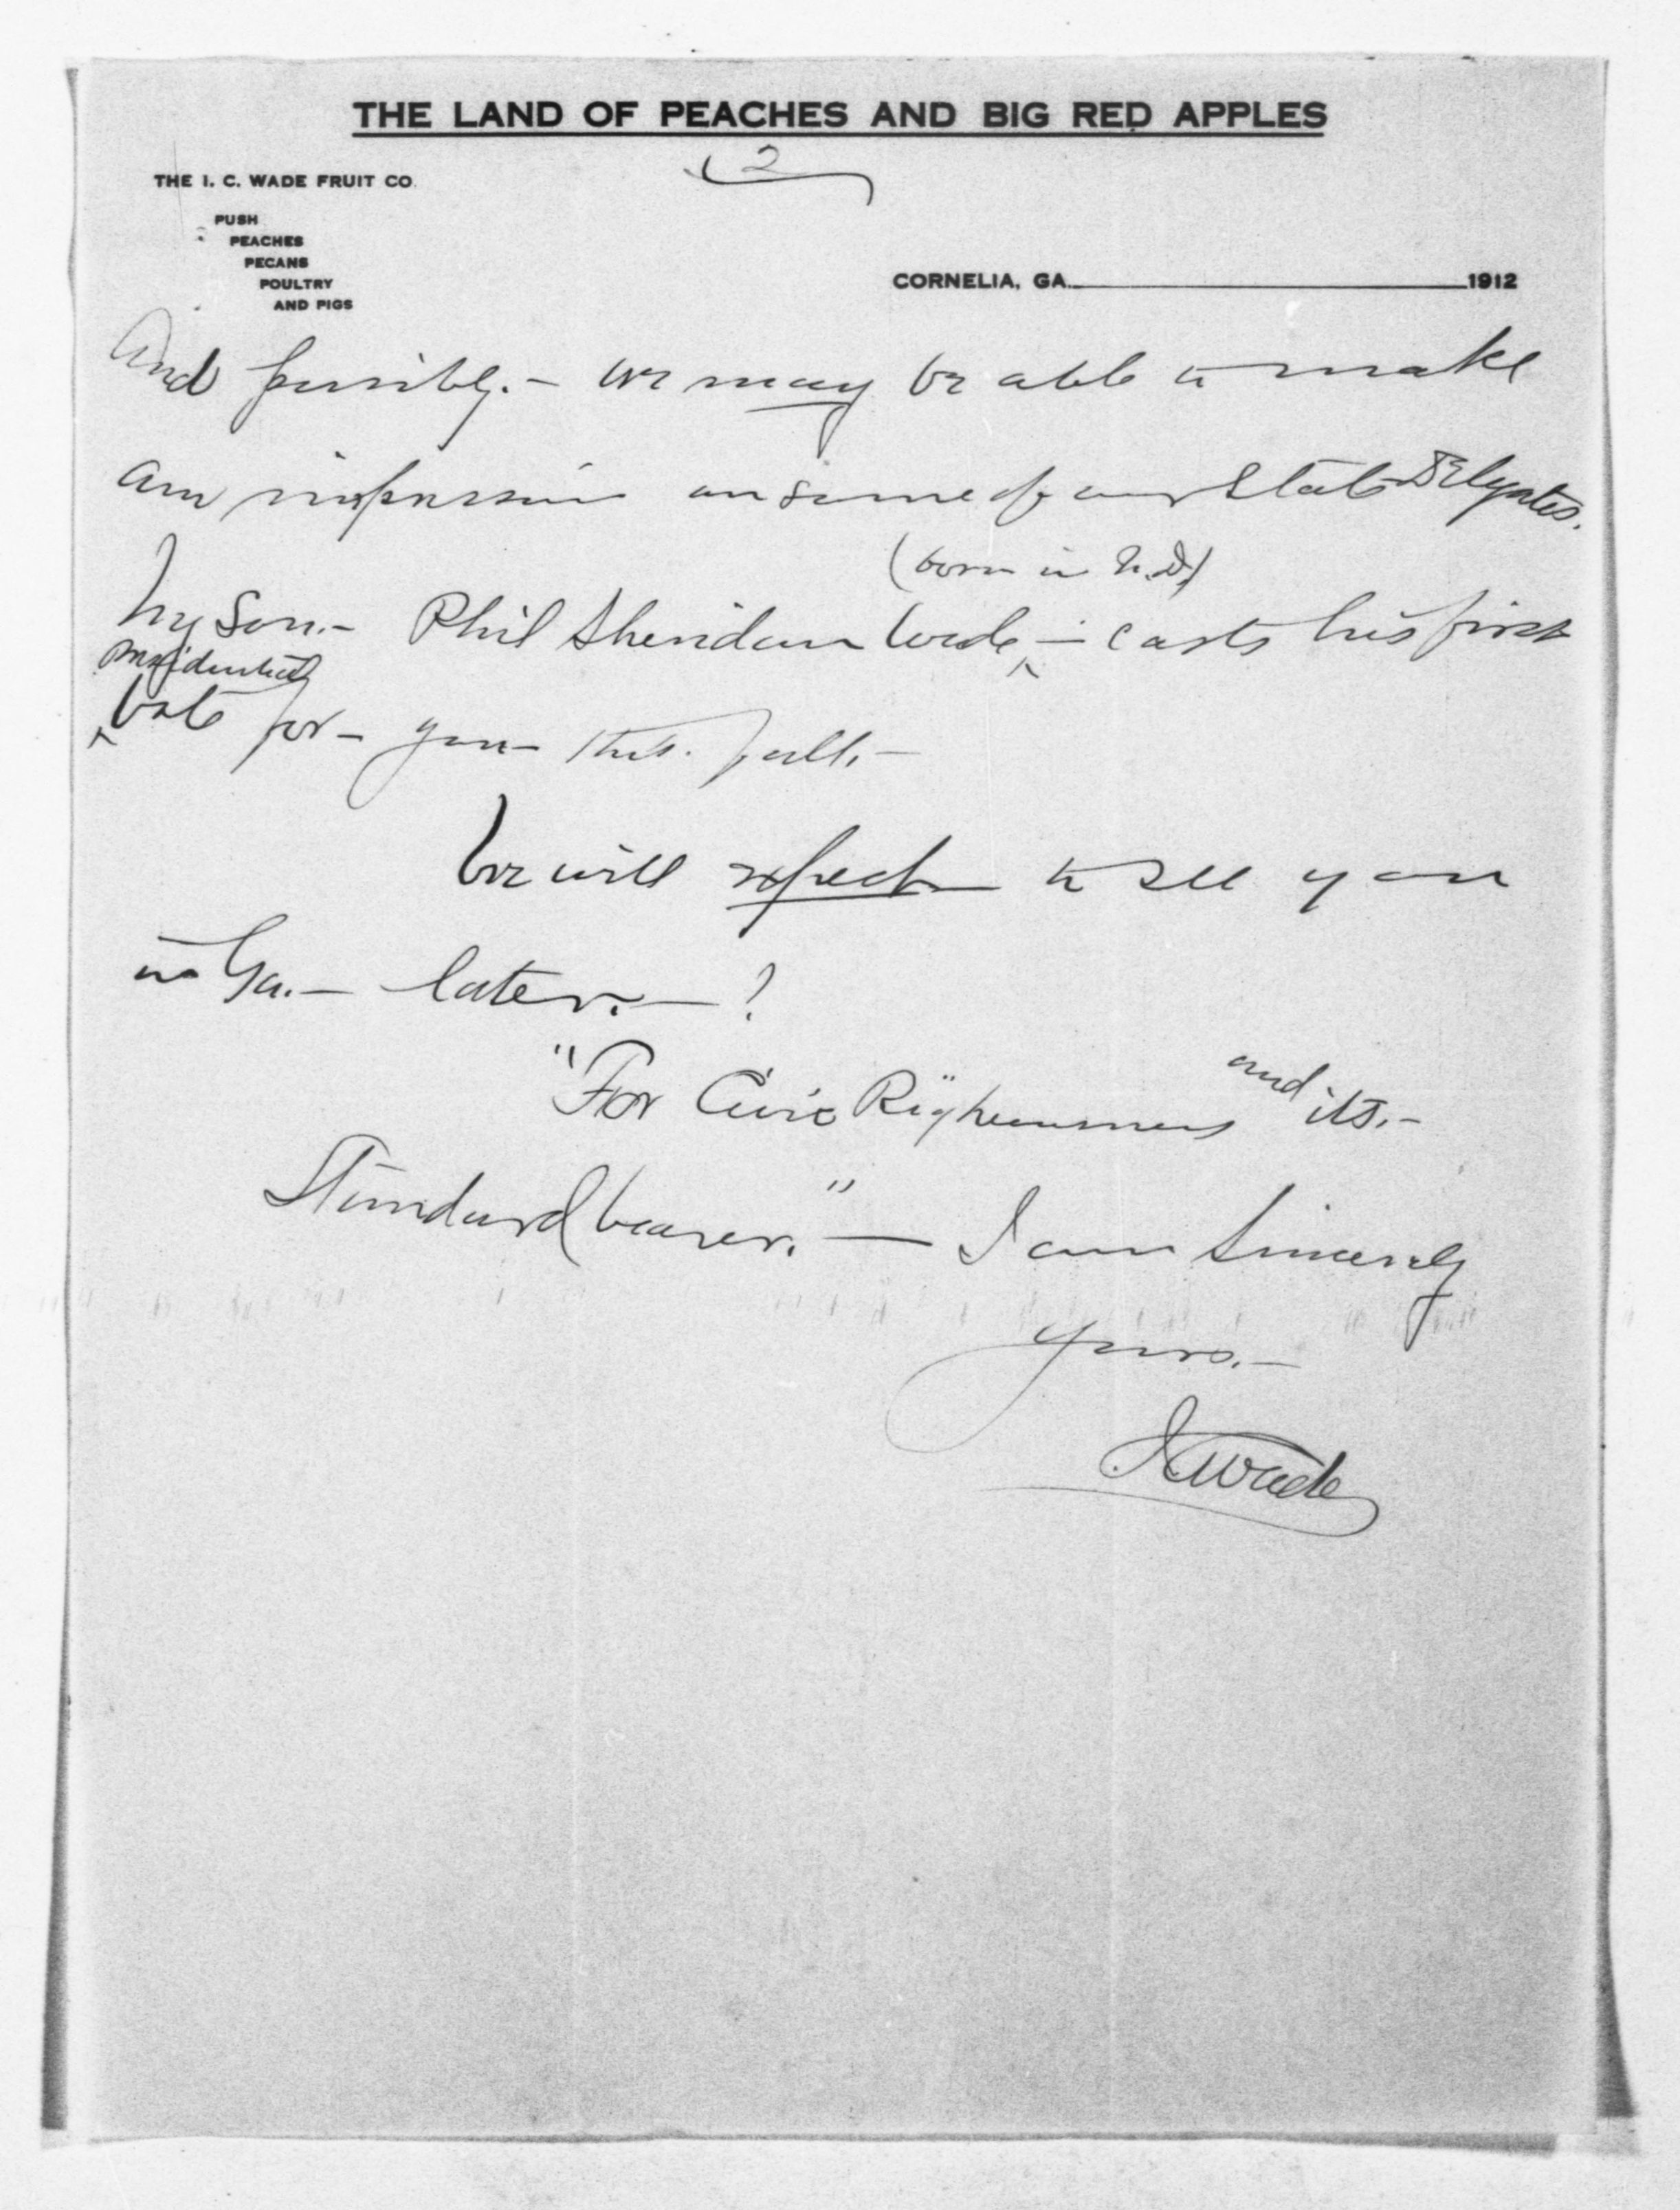 THE LAND OF PEACHES AND BIG RED APPLES
2
THE I. C. WADE FRUIT CO.
PUSH
PEACHES
PECANS
POULTRY
AND PIGS
CORNELIA, GA. 1912
And possibly. - we may be able to make
an impression on some of our State Delegates.
(born in N.D.)
My Son. - Phil Sheridan Wade, - casts his first
presidential
vote for - you - this. fall. -
We will expect to see you
in Ga. - later. - ?
"For Civic Righteousness and its. -
Standard bearer." - I am Sincerely
yours. -
I.C. Wade